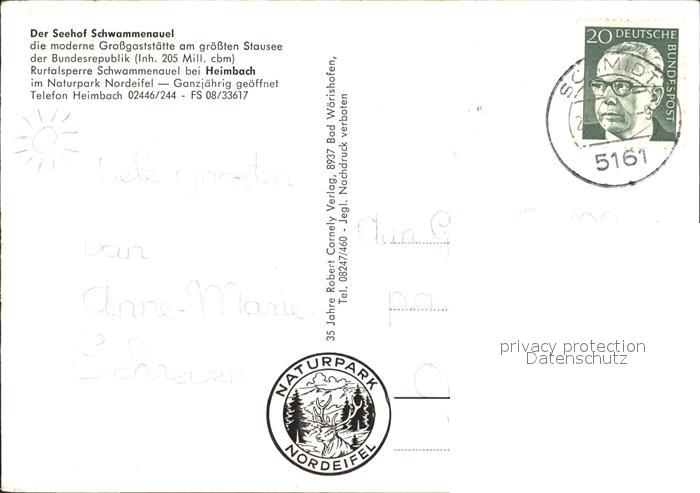 Der Seehof Schwammenauel
die moderne Großgaststätte am größten Stausee
der Bundesrepublik (Inh. 205 Mill. cbm)
Rurtalsperre Schwammenauel bei Heimbach
im Naturpark Nordeifel — Ganzjährig geöffnet
Telefon Heimbach 02446/244 - FS 08/33617
20 DEUTSCHE
BUNDESPOST
SCHMIDT
5161
35 Jahre Robert Cornely Verlag, 8937 Bad Wörishofen,
Tel. 08247/460 - Jegl. Nachdruck verboten
groeten
van
Anne-Marie
Schreven
privacy protection
Datenschutz
NATURPARK
NORDEIFEL